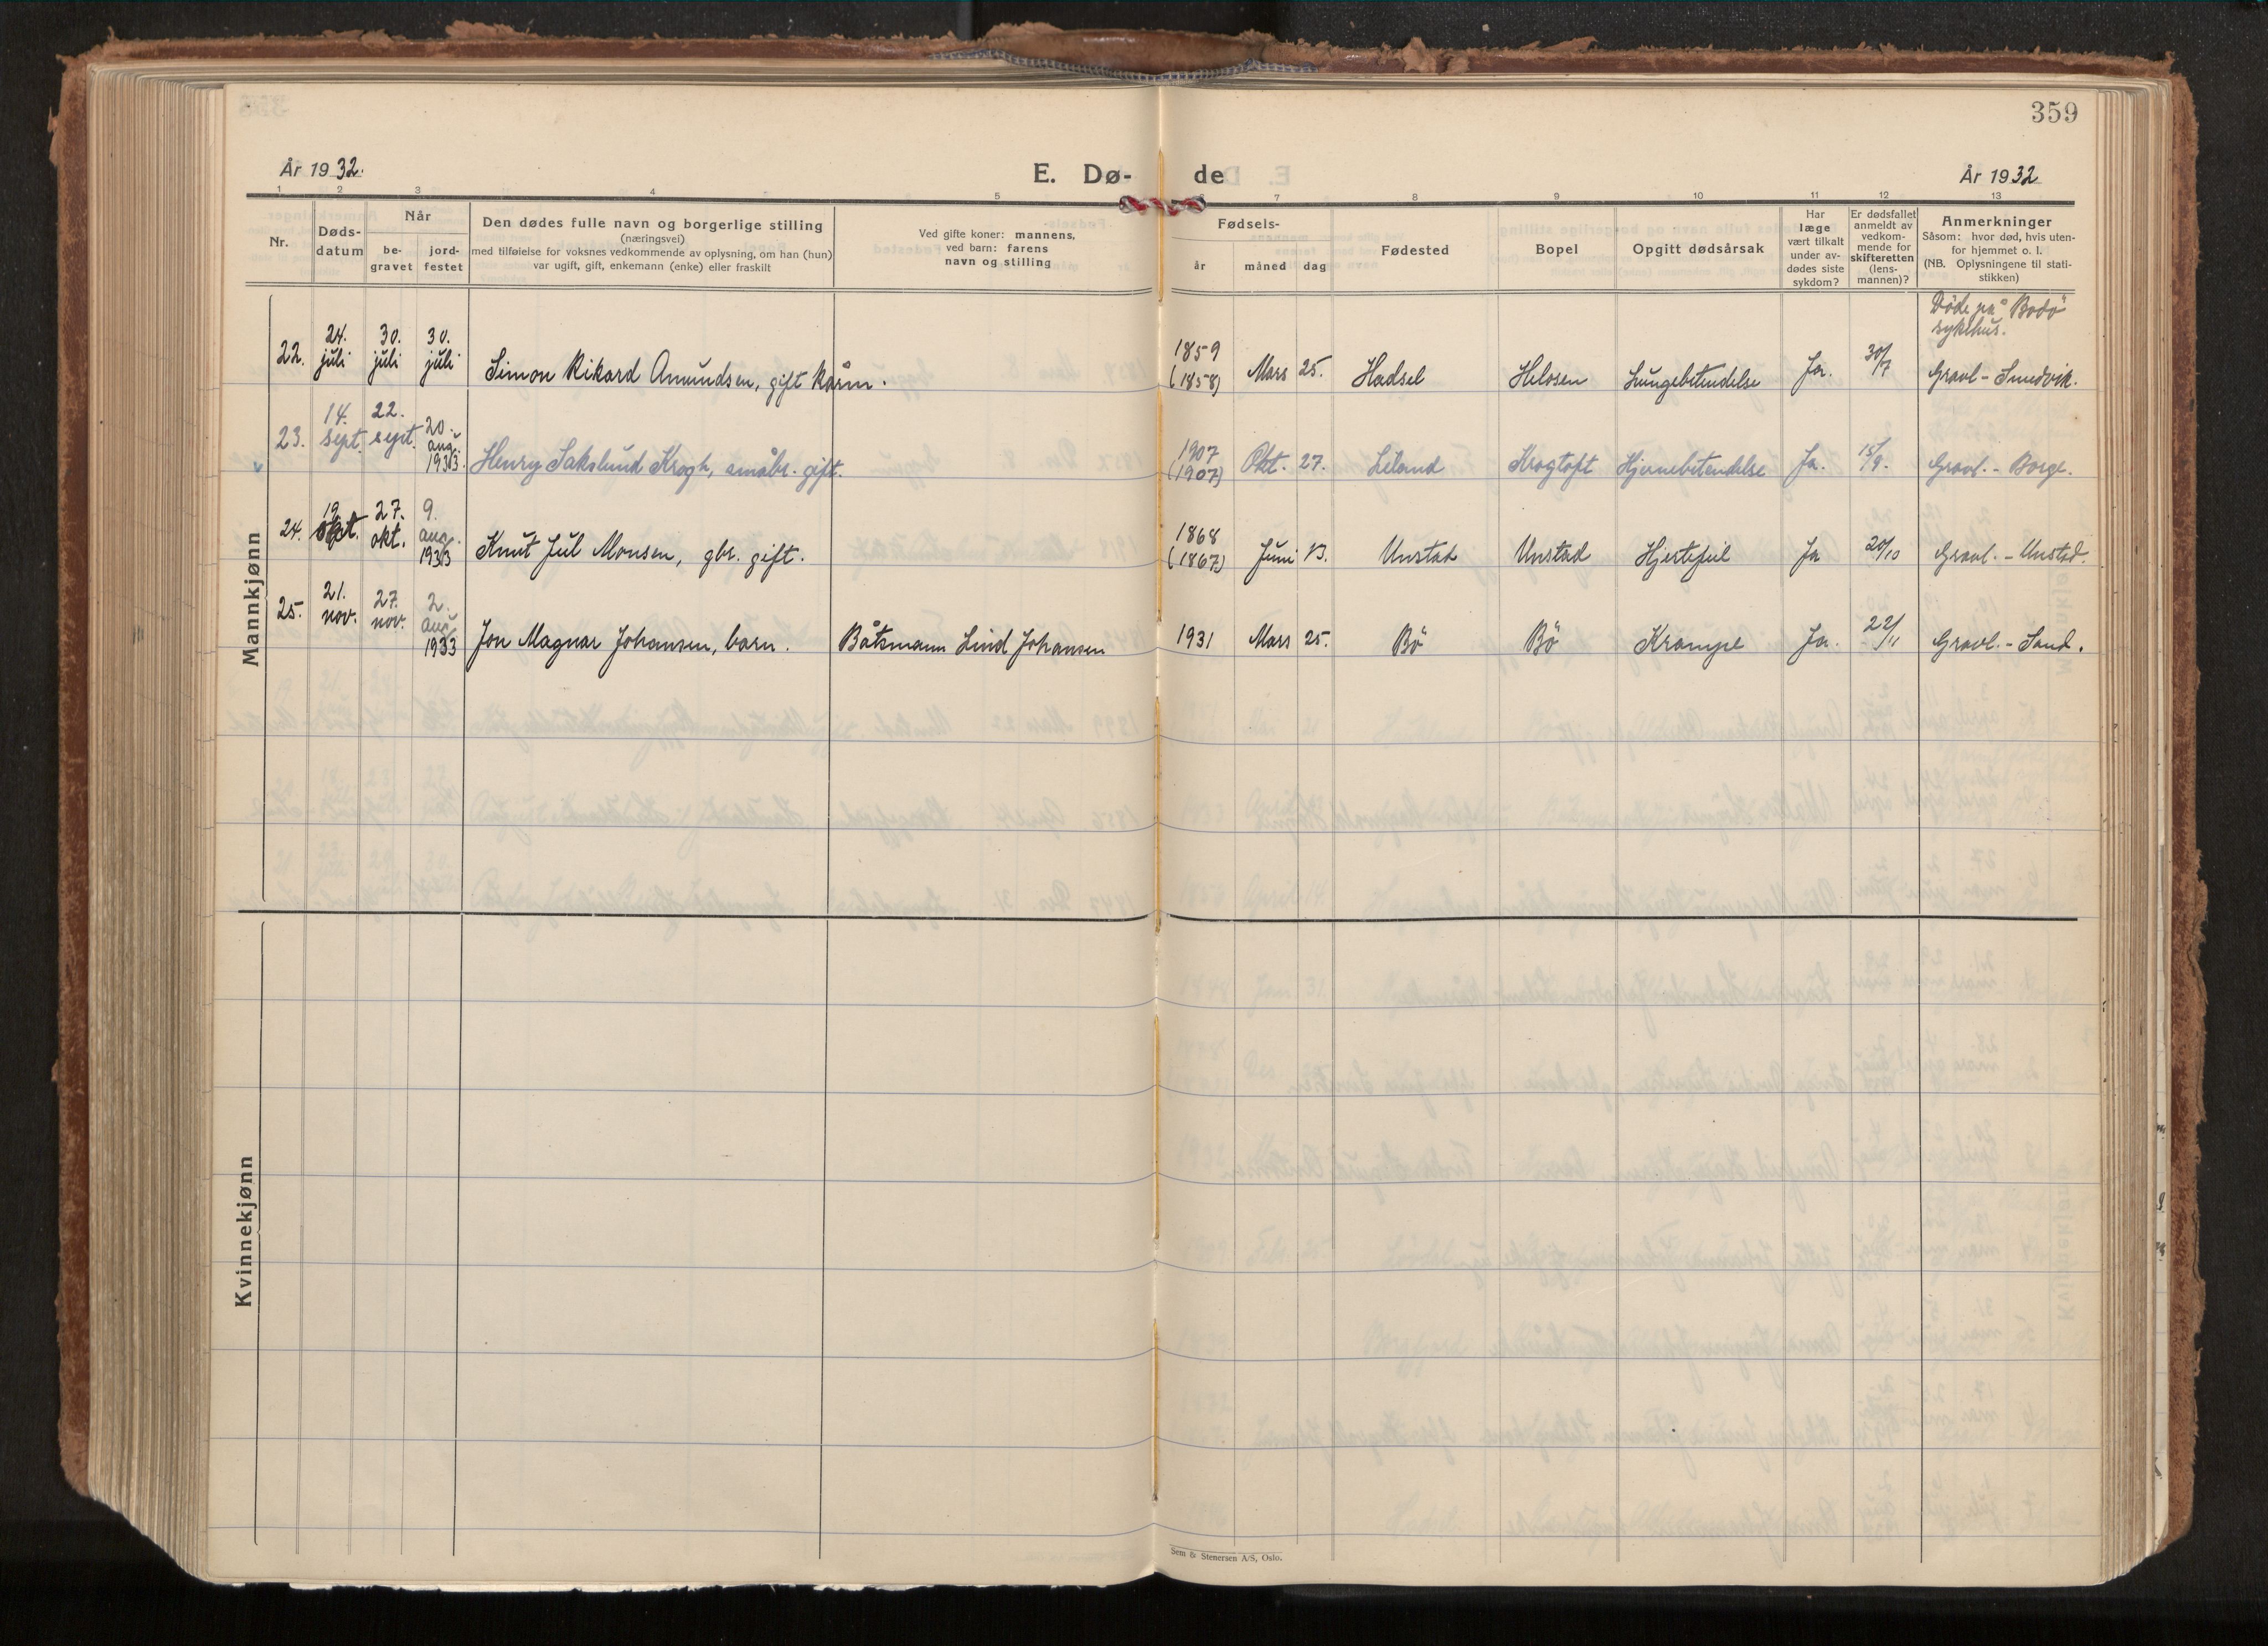 359
År 1932.
E. Dø-
de
År 1932
1 2 3 4 5 6 7 8 9 10 11 12 13
Nr.
Døds-
datum
Når
be-
gravet
jord-
festet
Den dødes fulle navn og borgerlige stilling
(næringsvei)
med tilføielse for voksnes vedkommende av oplysning, om han (hun)
var ugift, gift, enkemann (enke) eller fraskilt
Ved gifte koner: mannens,
ved barn: farens
navn og stilling
Fødsels-
år måned dag
Fødested
Bopel
Opgitt dødsårsak
Har
læge
vært tilkalt
under av-
dødes siste
sykdom?
Er dødsfallet
anmeldt av
vedkom-
mende for
skifteretten
(lens-
mannen)?
Anmerkninger
Såsom: hvor død, hvis uten-
for hjemmet o. l.
(NB. Oplysningene til stati-
stikken)
Mannkjønn
22. 24. juli 30. juli 30. juli Simon Rikard Amundsen, gift kårm. 1859 (1858) Mars 25. Hadsel Helosen Lungebetendelse Ja. 30/7 Døde på Bodö sykehus. Gravl - Smedvik.
23. 14. sept. 22. sept. 20. aug. 1933. Henry Sakslund Krogh, småbr. gift. 1907 (1907) Okt. 27. Leland Krogtoft Hjernebetendelse Ja. 15/9. Gravl. - Borge.
24. 19. okt. 27. okt. 9. aug. 1933 Knut Jul Monsen, gbr. gift. 1868 (1867) Juni 13. Unstad Unstad Hjertefeil Ja 20/10 Gravl. - Unstad.
25. 21. nov. 27. nov. 2. aug. 1933 Jon Magnar Johansen, barn. Båtsmann Lind Johansen 1931 Mars 25. Bö Bö Krampe Ja. 22/11 Gravl. - Sand.
Kvinnekjønn
Sem & Stenersen A/S, Oslo.